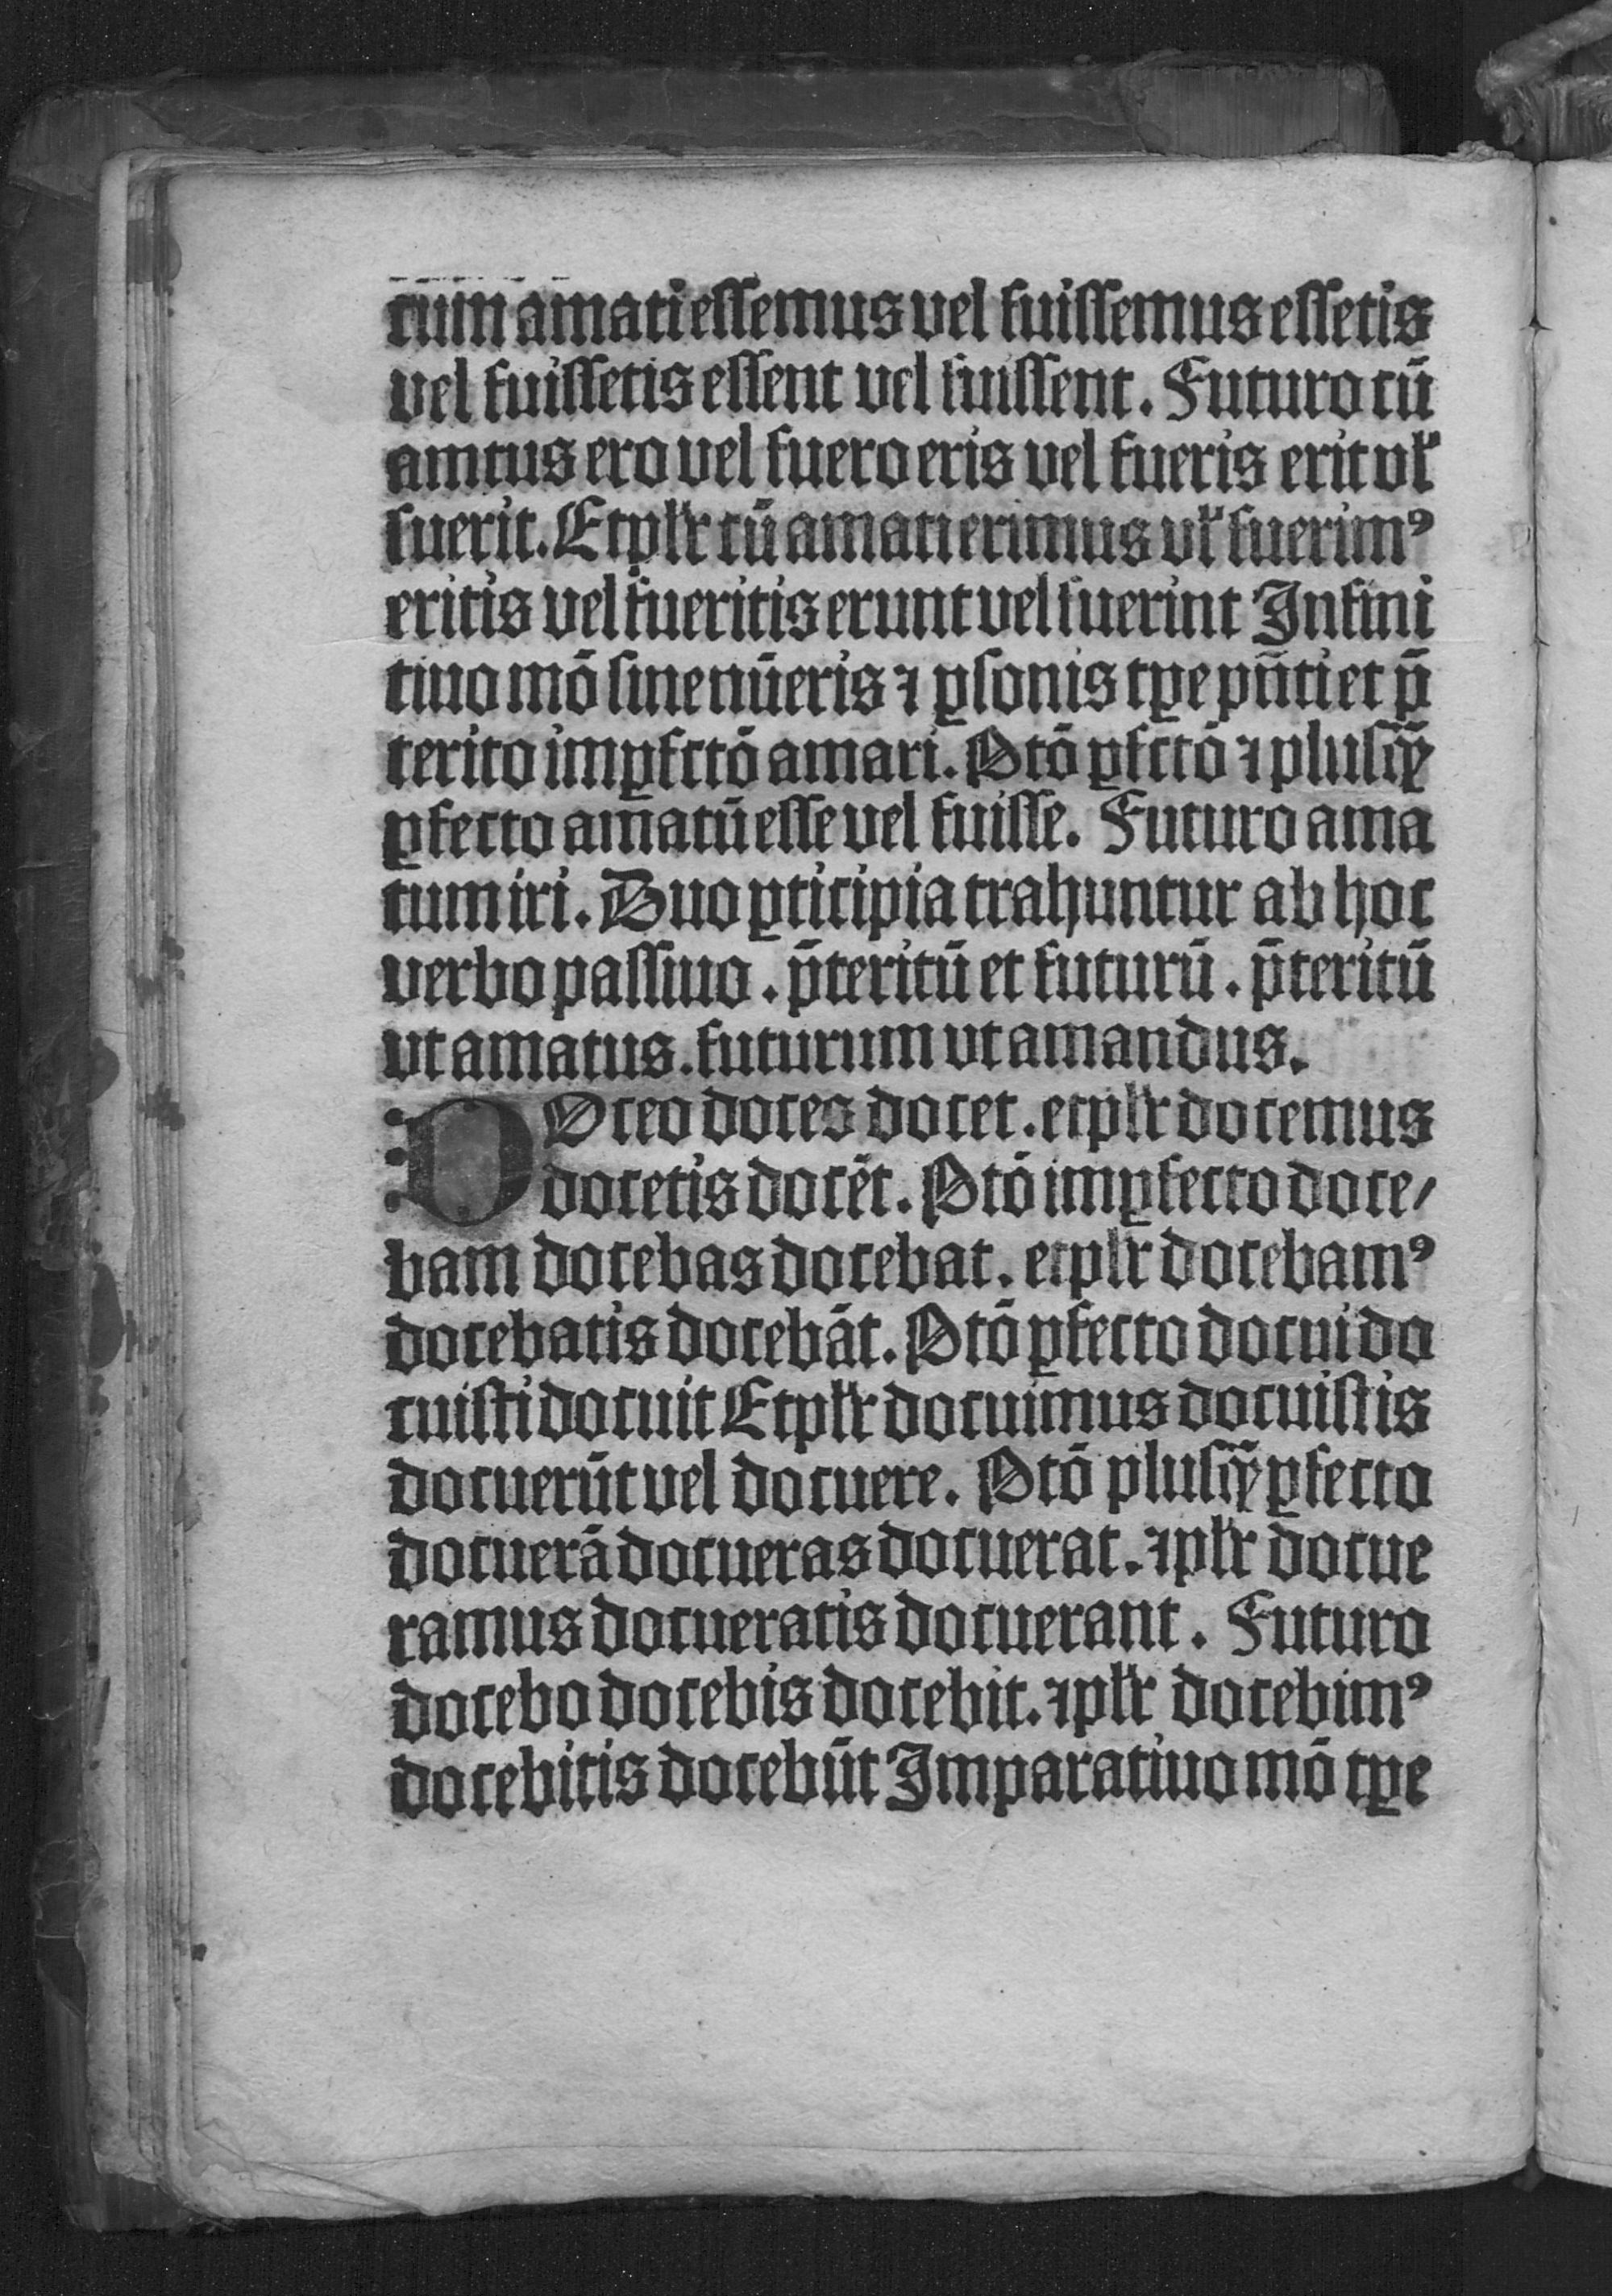 cum amati essemus vel fuissemus essetis
vel fuissetis essent vel fuissent. Futuro cū
amtus ero vel fuero eris vel fueris erit vł
fuerit. Et plr̄ cū amati erimus vł fuerimꝰ
eritis vel fueritis erunt vel fuerint Infini
tiuo mō sine nūeris ⁊ ꝑsonis tꝑe pn̄ti et p̄
terito imꝑfctō amari. Ptō ꝑfctō ⁊ plusqꝫ̄
ꝑfecto amatū esse vel fuisse. Futuro ama
tum iri. Duo ꝑticipia trahuntur ab hoc
verbo passiuo. p̄teritū et futurū. p̄teritū
vt amatus. futurum vt amandus.
DOceo doces docet. et plr̄ docemus
docetis docēt. Ptō imꝑfecto doce/
bam docebas docebat. et plr̄ docebamꝰ
docebatis docebāt. Ptō ꝑfecto docui do
cuisti docuit Et plr̄ docuimus docuistis
docuerūt vel docuere. Ptō plusqꝫ̄ ꝑfecto
docuerā docueras docuerat. ⁊ plr̄ docue
ramus docueratis docuerant. Futuro
docebo docebis docebit. ⁊ plr̄ docebimꝰ
docebitis docebūt Imparatiuo mō tꝑe